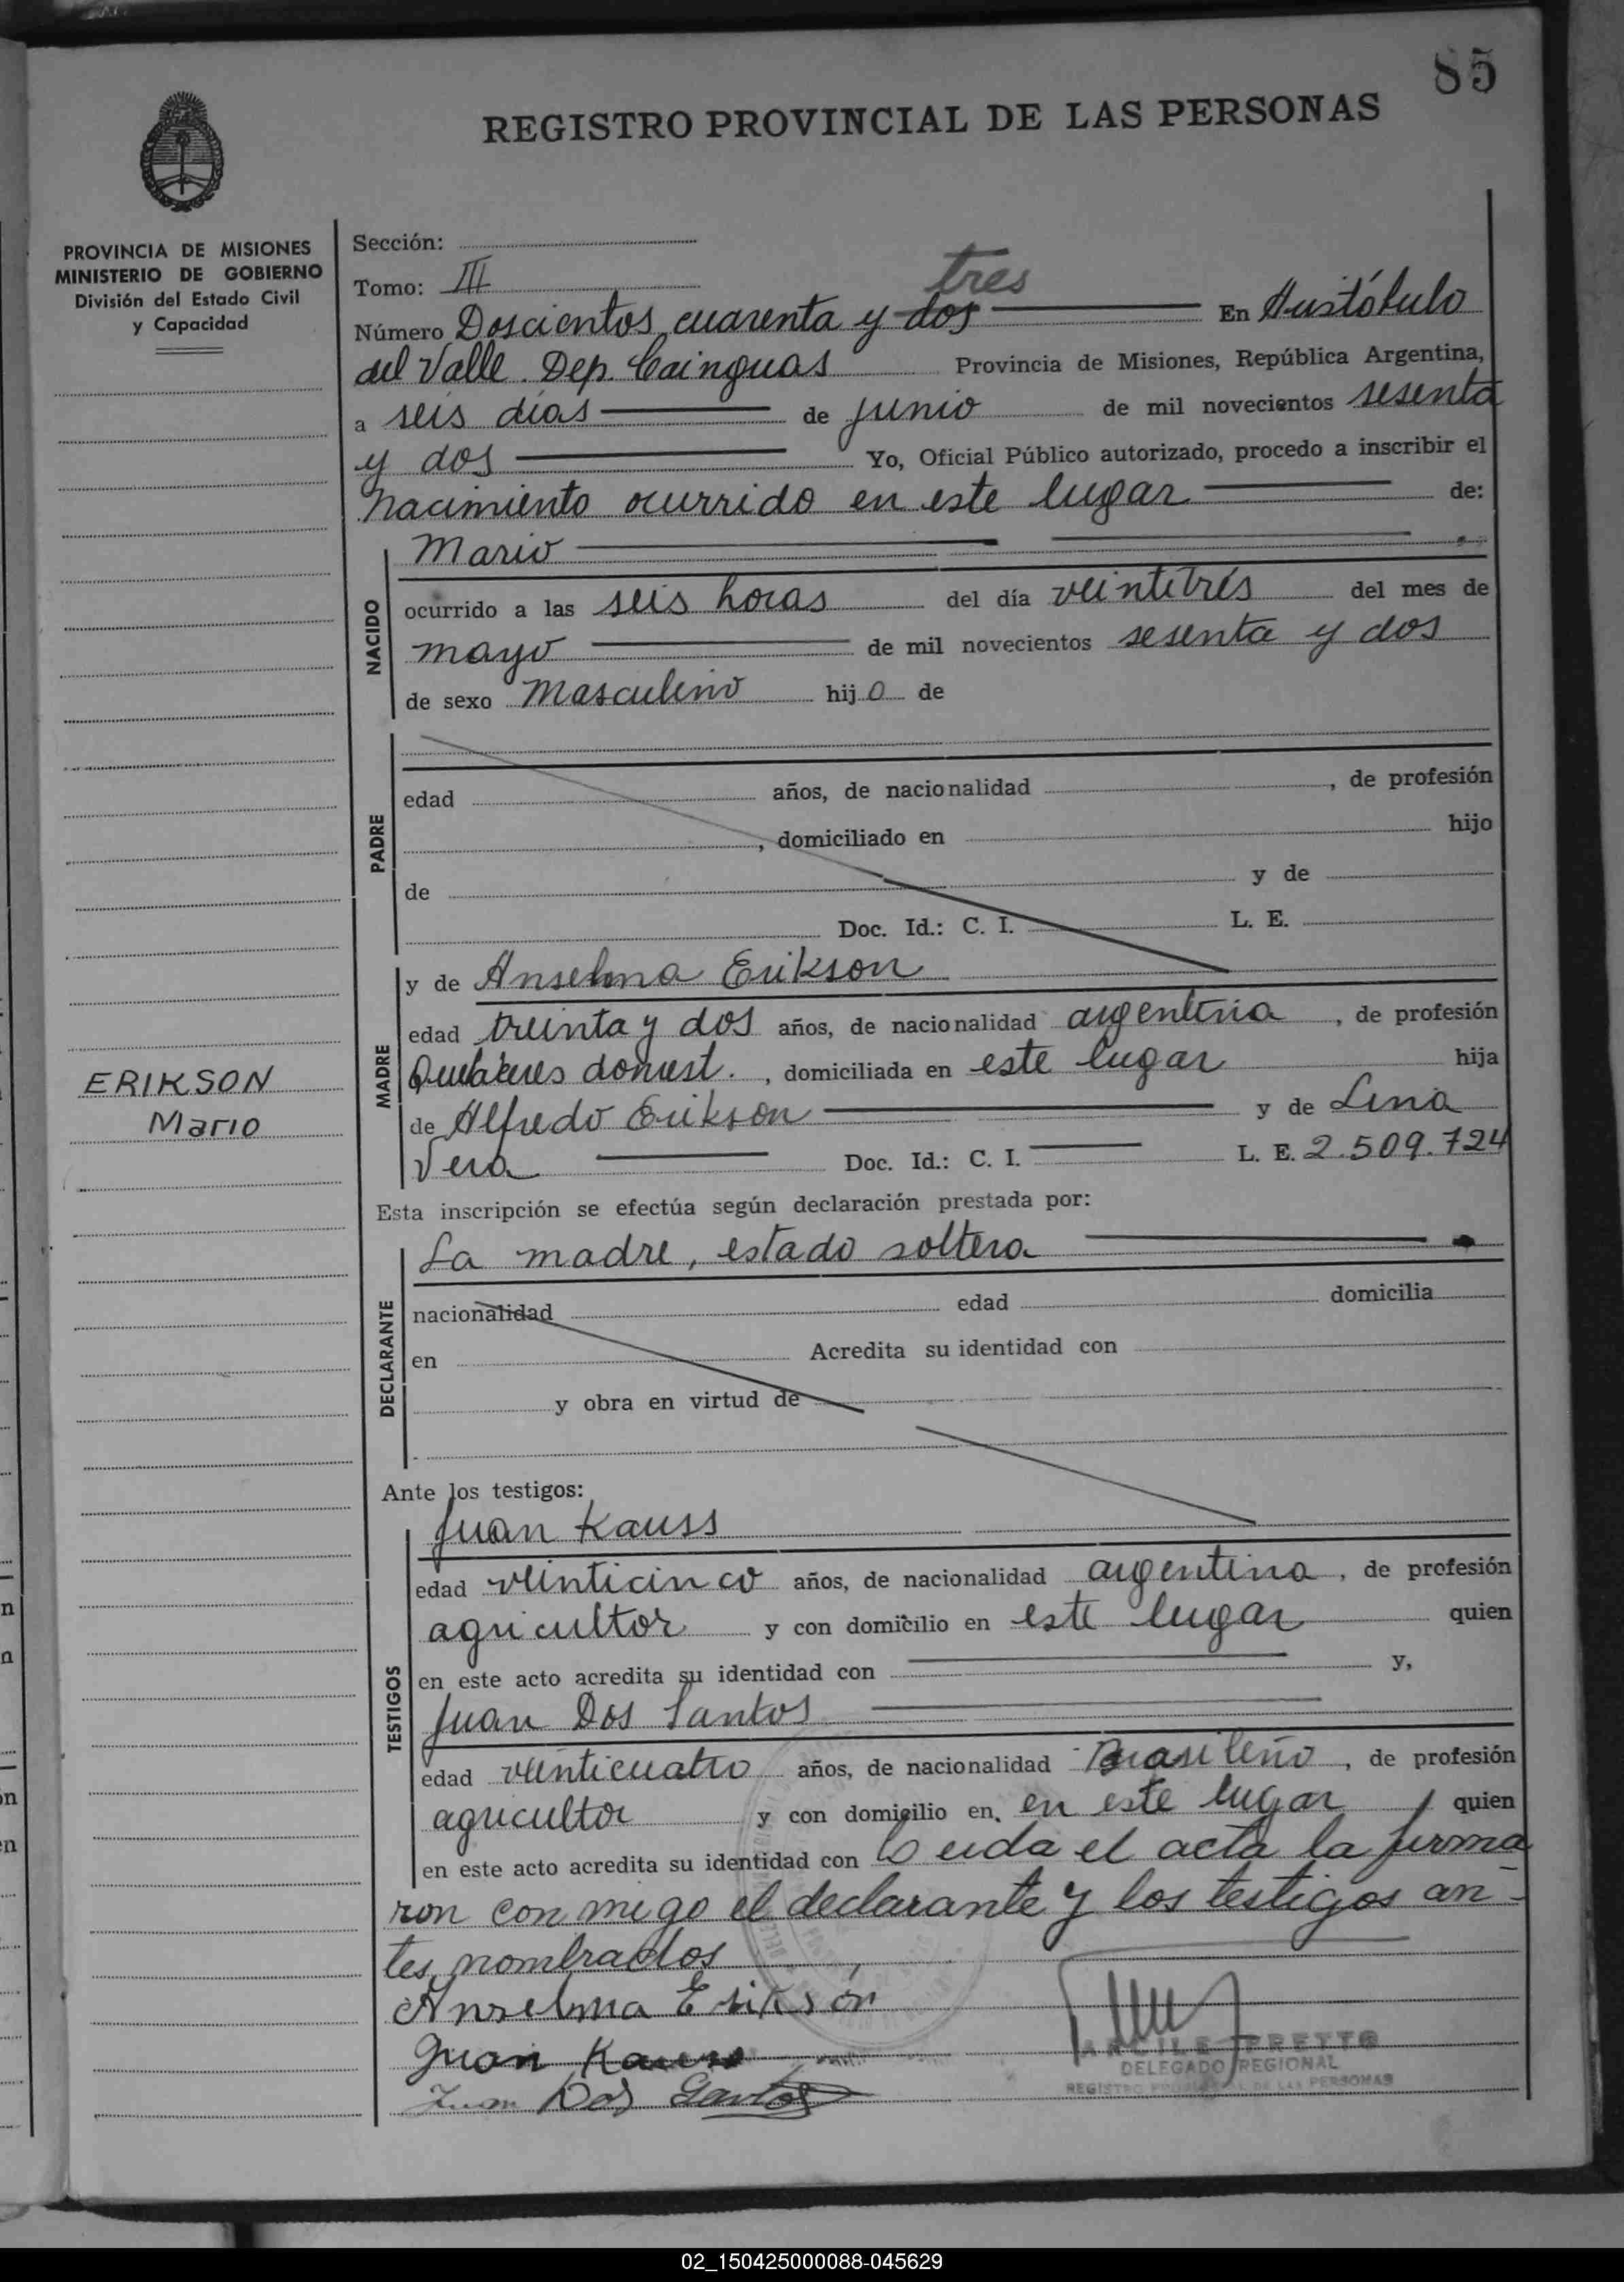 85
REGISTRO PROVINCIAL DE LAS PERSONAS
PROVINCIA DE MISIONES
MINISTERIO DE GOBIERNO
División del Estado Civil
y Capacidad
Sección:
Tomo: III
tres
Número Doscientos cuarenta y dos En Aristóbulo
del Valle. Dep. Cainguas Provincia de Misiones, República Argentina,
a seis días de junio de mil novecientos sesenta
y dos Yo, Oficial Público autorizado, procedo a inscribir el
nacimiento ocurrido en este lugar de:
Mario
NACIDO
ocurrido a las seis horas del día veintitrés del mes de
mayo de mil novecientos sesenta y dos
de sexo Masculino hijo de
PADRE
edad años, de nacionalidad , de profesión
, domiciliado en hijo
de y de
Doc. Id.: C. I. L. E.
MADRE
y de Anselma Erikson
edad treinta y dos años, de nacionalidad argentina , de profesión
Quehaceres domest. , domiciliada en este lugar hija
de Alfredo Erikson y de Lina
Vera Doc. Id.: C. I. L. E. 2.509.724
ERIKSON
Mario
Esta inscripción se efectúa según declaración prestada por:
La madre, estado soltera
DECLARANTE
nacionalidad edad domicilia
en Acredita su identidad con
y obra en virtud de
Ante los testigos:
Juan Kauss
TESTIGOS
edad veinticinco años, de nacionalidad argentina , de profesión
agricultor y con domicilio en este lugar quien
en este acto acredita su identidad con y,
Juan Dos Santos
edad veinticuatro años, de nacionalidad Brasileño , de profesión
agricultor y con domicilio en en este lugar quien
en este acto acredita su identidad con Leida el acta la firma
ron con migo el declarante y los testigos an-
tes nombrados
Anselma Eriksón
Juan Kauss
Juan Dos Santos
PRETTO
DELEGADO REGIONAL
REGISTRO PROVINCIAL DE LAS PERSONAS
02_150425000088-045629